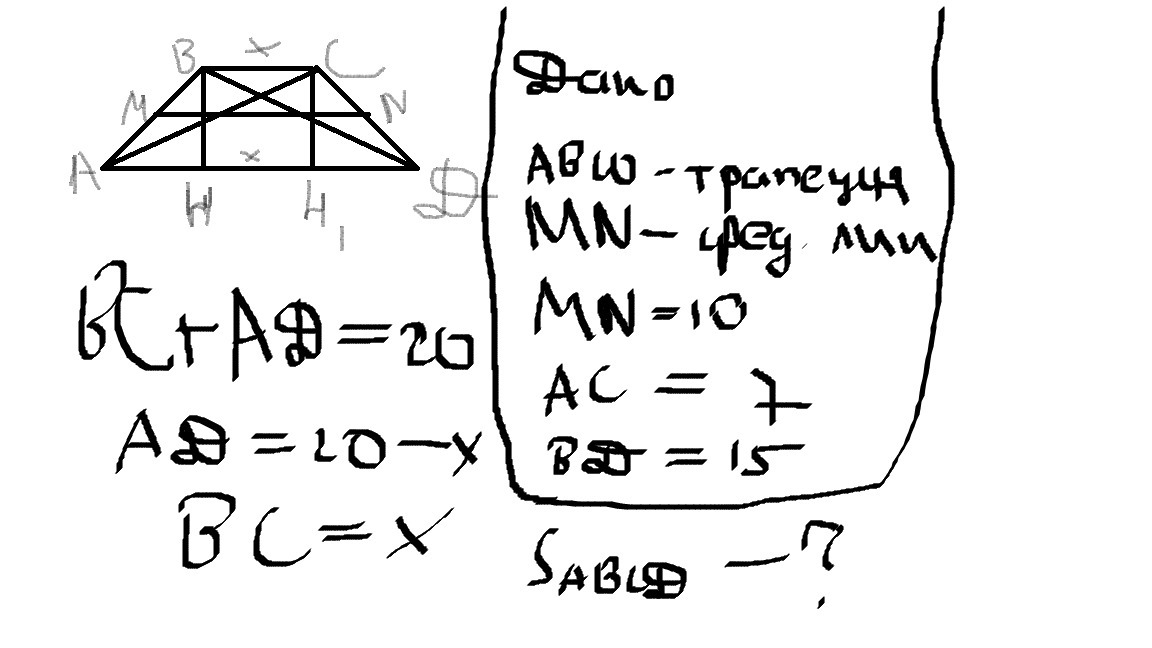 B x C
M N
A x D
H H1
BC+AD=20
AD=20-x
BC=x
Дано
ABCD - трапеция
MN - сред. лин
MN=10
AC = 7
BD = 15
SABCD - ?